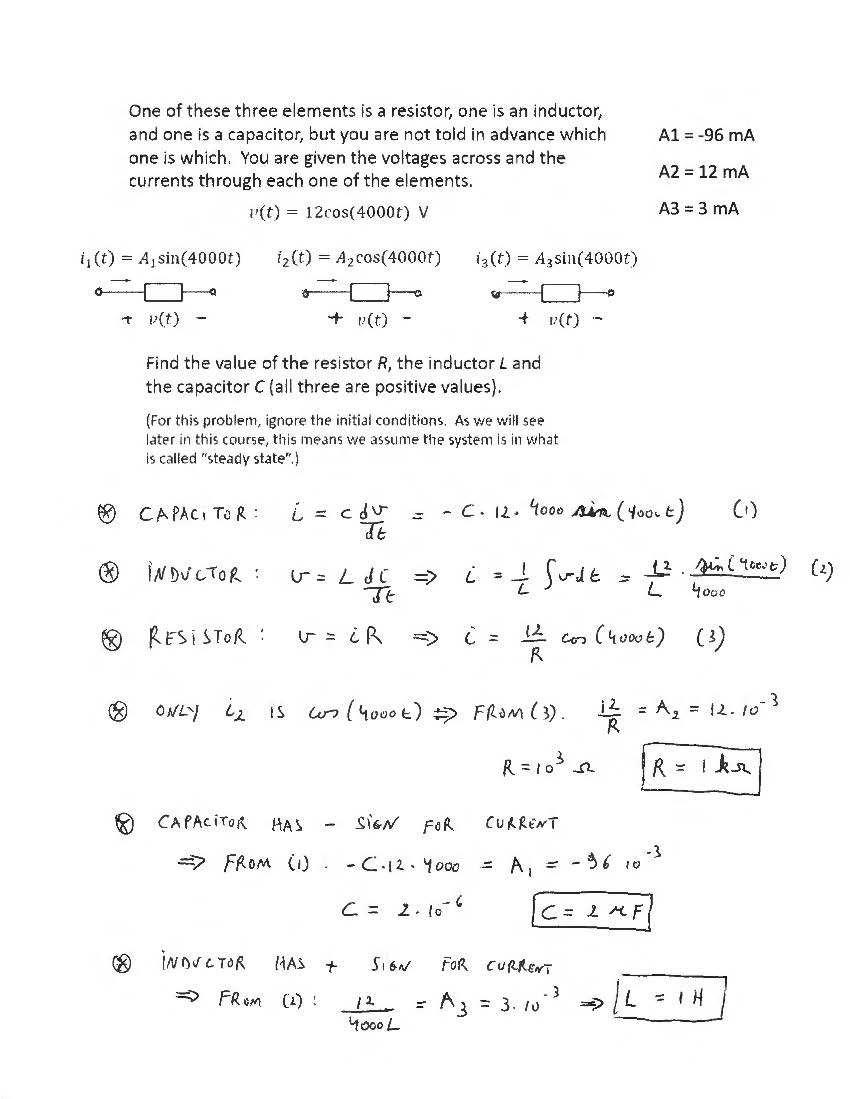 One of these three elements is a resistor, one is an inductor,
and one is a capacitor, but you are not told in advance which
one is which. You are given the voltages across and the
currents through each one of the elements.
A1 = -96 mA
A2 = 12 mA
A3 = 3 mA
v(t) = 12cos(4000t) V
i₁(t) = A₁sin(4000t) i₂(t) = A₂cos(4000t) i₃(t) = A₃sin(4000t)
+ v(t) - + v(t) - + v(t) -
Find the value of the resistor R, the inductor L and
the capacitor C (all three are positive values).
(For this problem, ignore the initial conditions. As we will see
later in this course, this means we assume the system is in what
is called "steady state".)
⊛ CAPACITOR: i = C dv/dt = - C · 12 · 4000 sin(4000t) (1)
⊛ INDUCTOR: v = L di/dt ⇒ i = 1/L ∫v dt = 12/L · sin(4000t)/4000 (2)
⊛ RESISTOR: v = iR ⇒ i = 12/R cos(4000t) (3)
⊛ ONLY i₂ IS cos(4000t) ⇒ FROM (3). 12/R = A₂ = 12·10⁻³
R = 10³ Ω R = 1 kΩ
⊛ CAPACITOR HAS - SIGN FOR CURRENT
⇒ FROM (1). -C·12·4000 = A₁ = -96 10⁻³
C = 2·10⁻⁶ C = 2 μF
⊛ INDUCTOR HAS + SIGN FOR CURRENT
⇒ FROM (2): 12/4000L = A₃ = 3·10⁻³ ⇒ L = 1 H